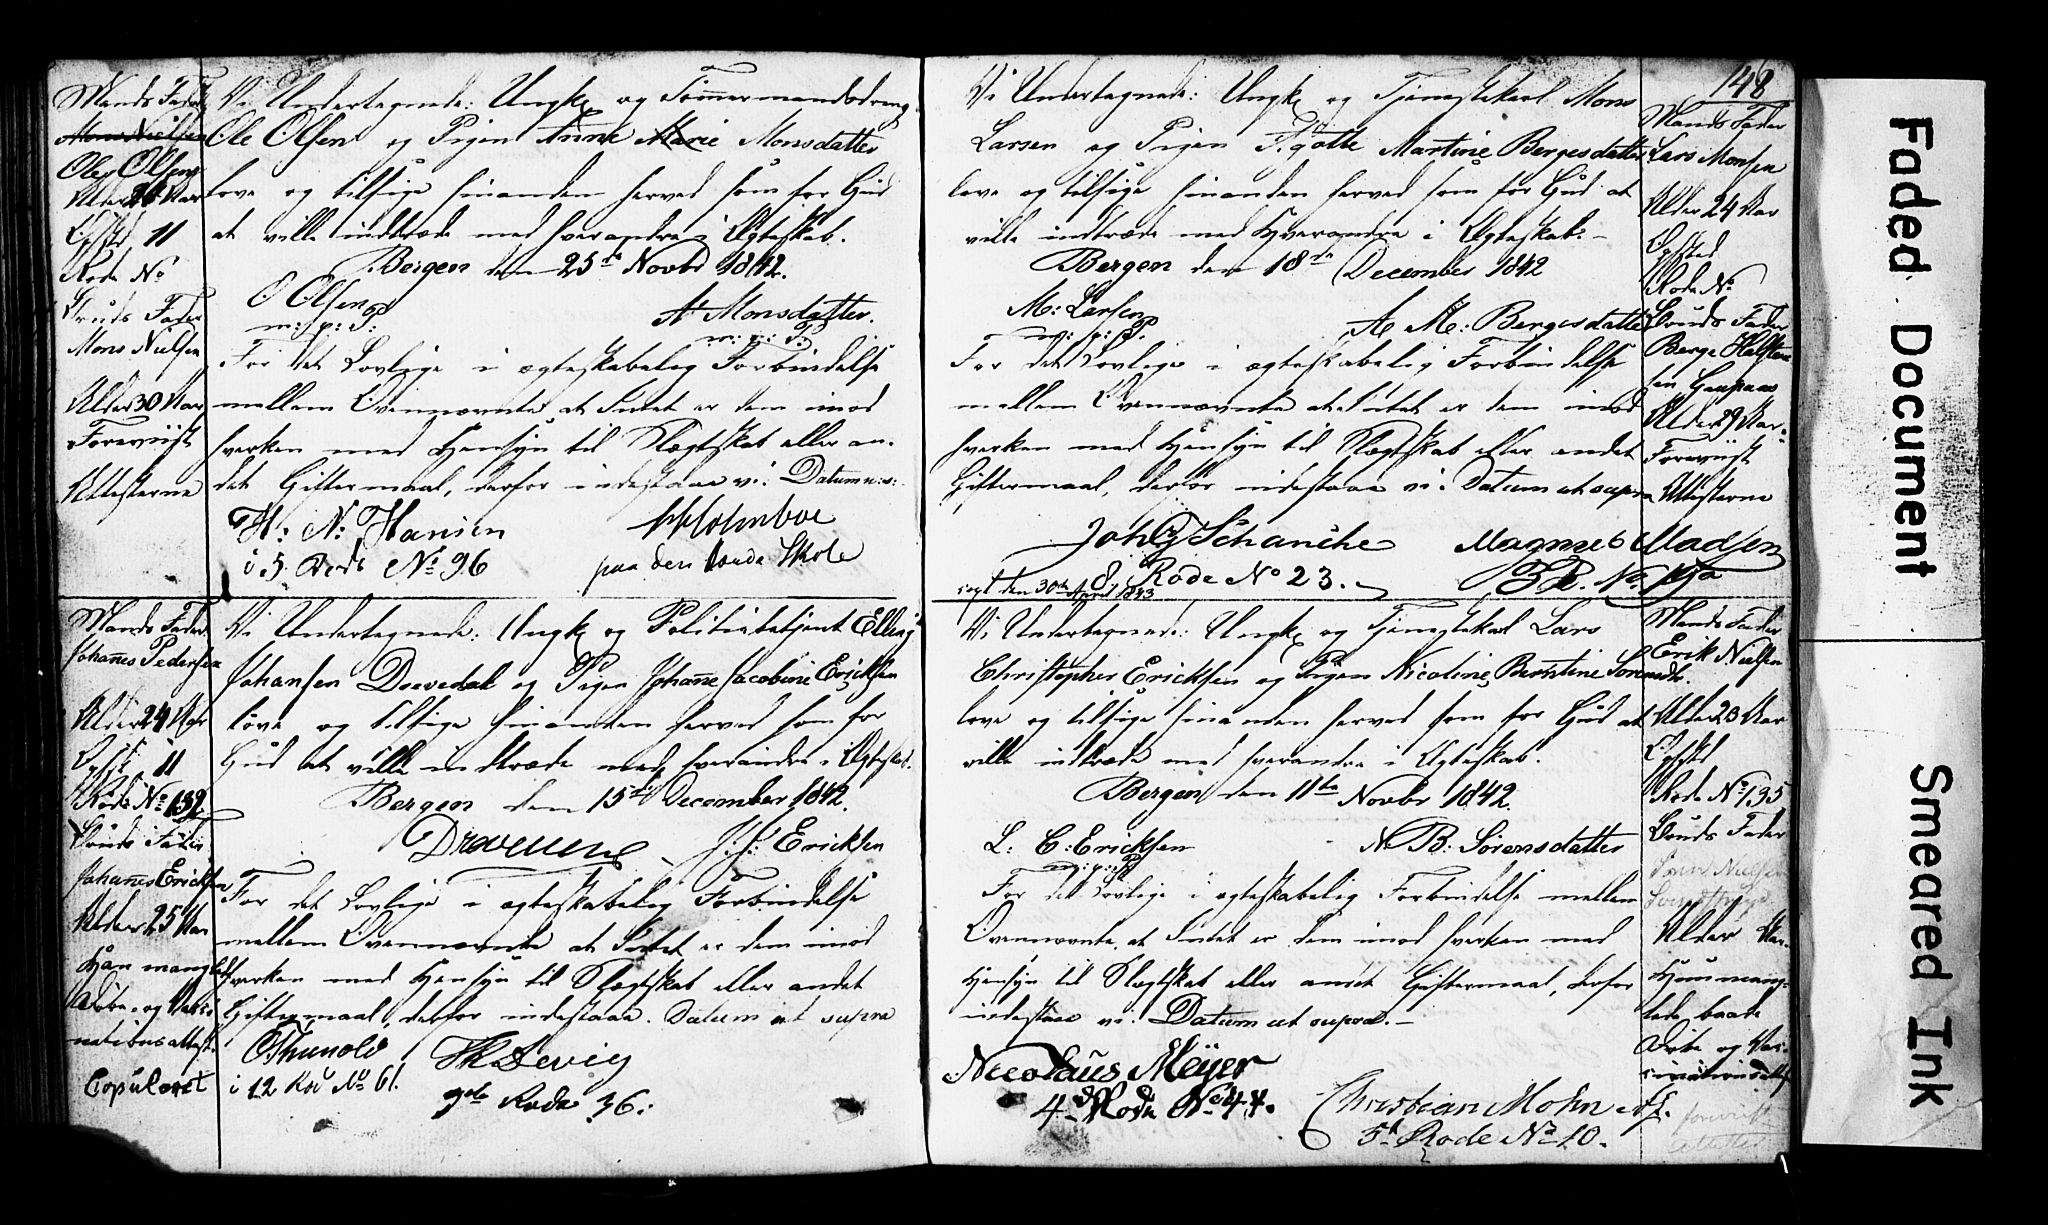 Mands Fader
Mons Nielsen
Ole Olsen
Alder 26 Aar
Opsted 11
Rode No
Bruds Fader
Mons Nielsen
Alder 30 Aar
Foreviist
Attesterne
Vi Undertegnede: Ungk. og Tømmermandsdreng
Ole Olsen og Pigen Anne Marie Monsdatter
love og tilsige hinanden herved som for Gud
at ville indtræde med hverandre i Ægteskab.
Bergen den 25de Novbr 1842.
O Olsen
m: p: P:
A Monsdatter.
m: p: P:
For det Lovlige i ægteskabelig Forbindelse
mellem Ovennævnte, at Intet er dem imod
hverken med Hensyn til Slægtskab eller an-
det Giftermaal, derfor indestaae vi. Datum u: s:
H: N: Hansen
i 5. Rode No 96
Holmboe
paa den Skole
Mands Fader
Johannes Pedersen
Alder 24 Aar
Opst. 11
Rode No 132.
Bruds Fader
Johannes Ericksen
Alder 25 Aar
Han manglede
Døbe- og Vacci-
nationsattest.
Copuleret
Vi Undertegnede: Ungk. og Politiebetjent Elling
Johansen Drevedal og Pigen Johanne Jacobine Ericksen
love og tilsige hinanden herved som for
Gud at ville indtræde med hverandre i Ægteskab.
Bergen den 15de December 1842.
J. J: Ericksen
For det Lovlige i ægteskabelig Forbindelse
mellem Ovennævnte at Intet er dem imod
hverken med Hensyn til Slægtskab eller andet
Giftermaal, derfor indestaae. Datum ut supra
O Thunold
i 12 Rod No 61.
Th Devig
9de Rode 36:
148
Vi Undertegnede: Ungk. og Tjenestekarl Mons
Larsen og Pigen Martine Bergesdatter
love og tilsige hinanden herved som for Gud at
ville indtræde med Hverandre i Ægteskab.-
Bergen den 18de December 1842
M: Larsen
m: p: P.
A M: Bergesdatter
For det Lovlige i ægteskabelig Forbindelse
mellem Ovennævnte at Intet er dem imod
hverken med Hensyn til Slægtskab eller andet
Giftermaal, derfor indestaae vi. Datum ut supra
Joh G Schanche
8 Rode No 23.
Magnus Madsen
sagt den 30te April 1843
Mands Fader
Lars Monsen
Alder 24 Aar
Opsted
Rode No
Bruds Fader
Berge
Alder 29 Aar.
Foreviist
Attesterne
Vi Undertegnede: Ungk. og Tjenestekarl Lars
Christopher Ericksen og Pigen Nicoline Berntine Sorensdtr.
love og tilsige hinanden herved som for Gud at
ville indtræde med hverandre i Ægteskab.
Bergen den 11te Novbr 1842.
L: C: Ericksen
m: p: P.
N B: Sörensdatter
For det Lovlige i ægteskabelig Forbindelse mellem
Ovennævnte at Intet er dem imod hverken med
Hensyn til Slægtskab eller andet Giftermaal, derfor
indestaae vi. Datum ut supra.-
Nicolaus Meÿer
4de Rode No 44.
Christian Mohn
5te Rode No 10.
Mands Fader
Erik Nielsen
Alder 23 Aar
Opsted
Rode No 135
Bruds Fader
Nielsen
Alder Aar.
Hun mang-
lede baade
Døbe og Vac-
cinationsattest
Faded Document
Smeared Ink